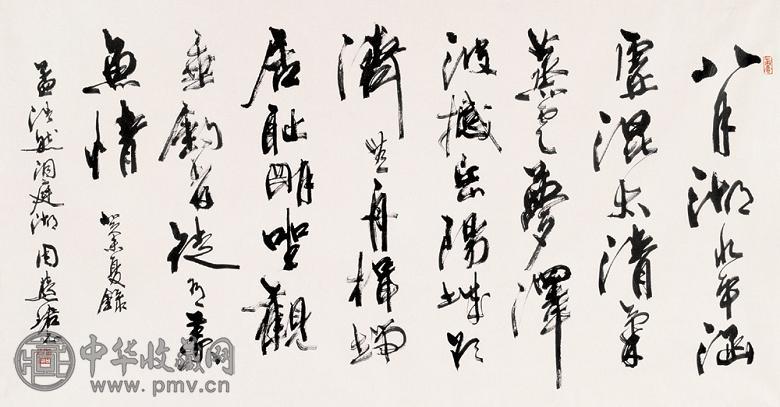 八月湖水平涵
虚混太清氣
蒸云夢澤
波撼岳陽城欲
濟無舟楫端
居耻明坐觀
垂釣者徒有羨
魚情
癸未夏錄
孟浩然洞庭湖 周慧珺書
中华收藏网
www.pmv.cn